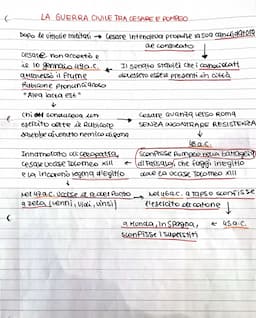 LA GUERRA CIVILE TRA CESARE E POMPEO
Dopo le vittorie militari → Cesare intendeva proporre la sua candidatura
al consolato
Cesare non accettò e
il 10 gennaio 49a.C.
attraversò il fiume
Rubicone pronunciando
"Alea iacta est"
Il senato stabilì che i candidati
dovessero essere presenti in città
Chi
conduceva un
esercito oltre il Rubicone
sarebbe diventato nemico di Roma
Cesare avanza verso Roma
SENZA INCONTRARE RESISTENZA
48 a.C.
Innamorato di Cleopatra,
Cesare uccise Tolomeo XIII
e la incoronò regina d'Egitto
Sconfisse Pompeo nella battaglia
di Farsalo, che fuggì in Egitto
dove lo uccise Tolomeo XIII
Nel 47a.C. vinse il re del Ponto
a Zela (veni, vidi, vinsi)
Nel 46a.C. a Tapso sconfisse
l'esercito di Catone
a Munda, in Spagna,
sconfisse i superstiti
45 a.C.